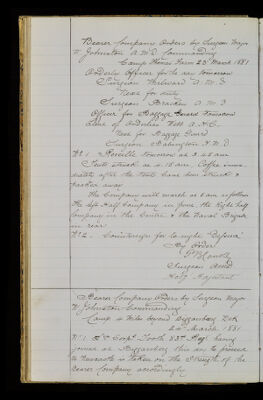 Bearer Company Orders by Surgeon Major
W. Johnston A.M.D. Commanding
Camp Farm 23rd March 1881
Orderly Officer for the day tomorrow
Surgeon A.M.D
Next for duty
Surgeon A.M.D
Officer for Baggage Guard Tomorrow
of Orderlies A.H.C.
Next for Baggage Guard
Surgeon Babington A.M.D
No 1. Reveille tomorrow at 5.
Tents struck at Coffee imme-
diately after the Tents have been struck &
packed away
The Company will march at 6 am as follows
The left Half Company in front the Right half
Company in the Centre & the Naval Brigade
in rear
No 2. Countersign for to-night
By Order
Surgeon AMD
Actg Adjutant
Bearer Company Orders by Surgeon Major
W. Johnston Commanding
Camp 2 Miles beyond Biggarsberg Nek
24th March 1881
No 1. Corpl Tooth 83rd Regt having
joined at Biggarsberg this day to proceed
to Newcastle is taken on the Strength of the
Bearer Company accordingly